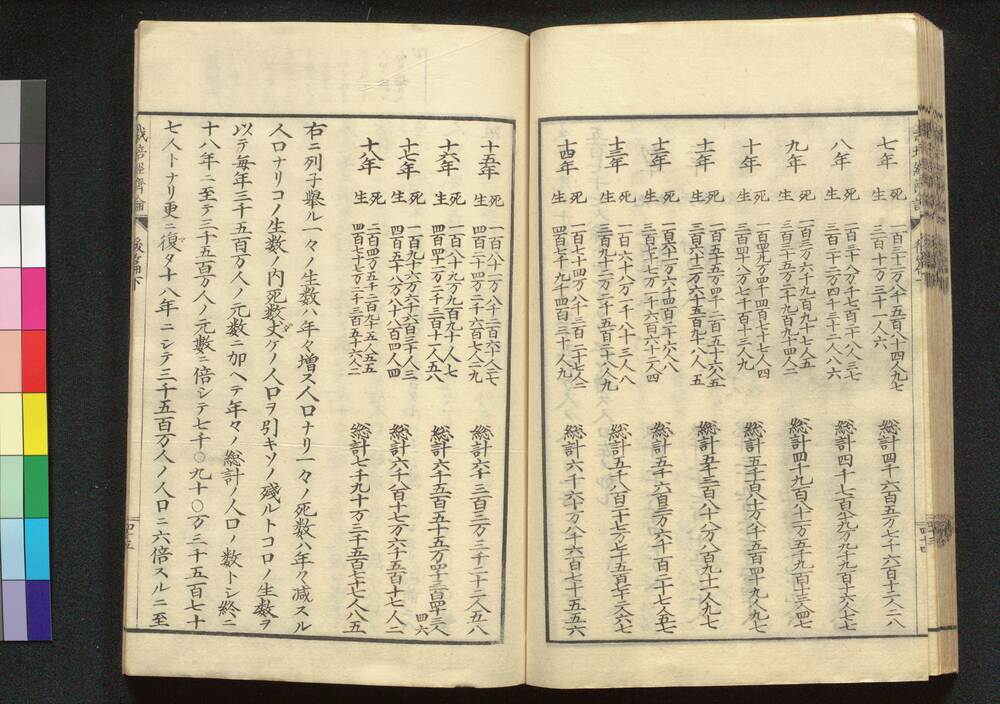 七年 死 一百三十二万八千五百八十四人九七
生 三百十万三十一人六
総計四千六百五万七千六百十二人二八
八年 死 一百三十八万千七百二十八人三七
生 三百二十二万四千三十二人八六
総計四千七百八十九万九千九百十六人七七
九年 死 一百四十三万六千九百九十七人五
生 三百三十五万二千九百九十四人二
総計四千九百八十一万五千九百十三人四七
十年 死 一百四十九万四千四百七十七人四
生 三百四十八万七千百十三人九
総計五千百八十万八千五百四十九人九七
十一年 死 一百五十五万四千二百五十六人五
生 三百六十二万六千五百九十八人五
総計五千三百八十八万八百九十一人九七
十二年 死 一百六十一万六千四百二十六人八
生 三百七十七万千六百六十二人四
総計五千六百三万六千百二十七人五七
十三年 死 一百六十八万千八十三人八
生 三百九十二万二千五百二十八人九
総計五千八百二十七万七千五百七十二人六七
十四年 死 一百七十四万八千三百二十七人二
生 四百七万九千四百三十人九
総計六千六十万八千六百七十五五六
十五年 死 一百八十一万八千二百六十人三七
生 四百二十四万二千六百七人二九
総計六千三百三万三千二十二人五八
十六年 死 一百八十九万九百九十人七
生 四百四十一万二千三百十一人五八
総計六千五百五十五万四千三百四十三人四六
十七年 死 一百九十六万六千六百三十人三
生 四百五十八万八千八百四人四
総計六千八百十七万六千五百十七人二
十八年 死 二百四万五千二百九十五人五五
生 四百七十七万二千三百五十六人二
総計七千九十万三千五百七十七人八五
右ニ列子擧ル一々ノ生数ハ年々増ス人口ナリ一々ノ死数ハ年々減スル
人口ナリコノ生数ノ内死数丈ケノ人口ヲ引キソノ殘ルトコロノ生数ヲ
以テ毎年三千五百万人ノ元数ニ加ヘテ年々ノ総計ノ人口ノ数トシ終ニ
十八年ニ至テ三千五百万人ノ元数ニ倍シテ七千〇九十〇万三千五百七十
七人トナリ更ニ復タ十八年ニシテ三千五百万人ノ人口ニ六倍スルニ至
栽培經濟論
後篇下
四十五